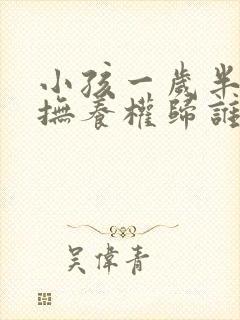 小孩一歲半
撫養權歸誰
吳偉青